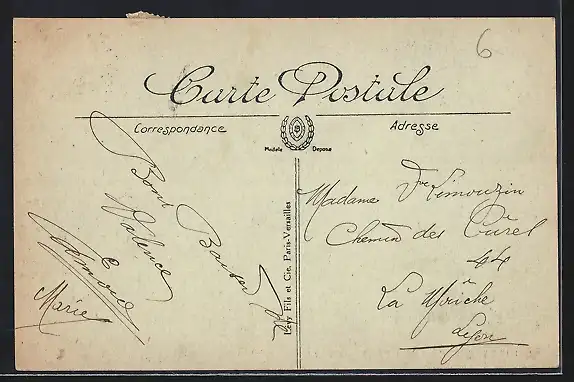 6
Carte Postale
Correspondance
Adresse
Modèle Déposé
Bons Baisers de
Valence
Armand
Marie
Levy Fils et Cie, Paris-Versailles
Madame Vve Limouzin
Chemin des Culattes
La Mouche
Lyon